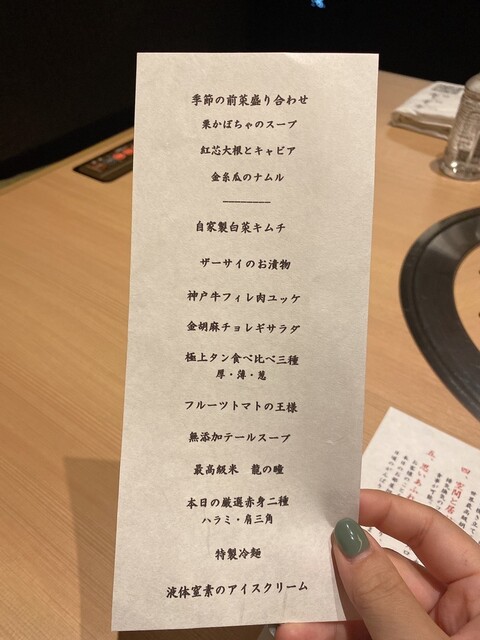 季節の前菜盛り合わせ
栗かぼちゃのスープ
紅芯大根とキャビア
金糸瓜のナムル
自家製白菜キムチ
ザーサイのお漬物
神戸牛フィレ肉ユッケ
金胡麻チョレギサラダ
極上タン食べ比べ三種
厚・薄・葱
フルーツトマトの王様
無添加テールスープ
最高級米 龍の瞳
本日の厳選赤身二種
ハラミ・肩三角
特製冷麺
液体窒素のアイスクリーム
四、空間と居
五、思いあふれ